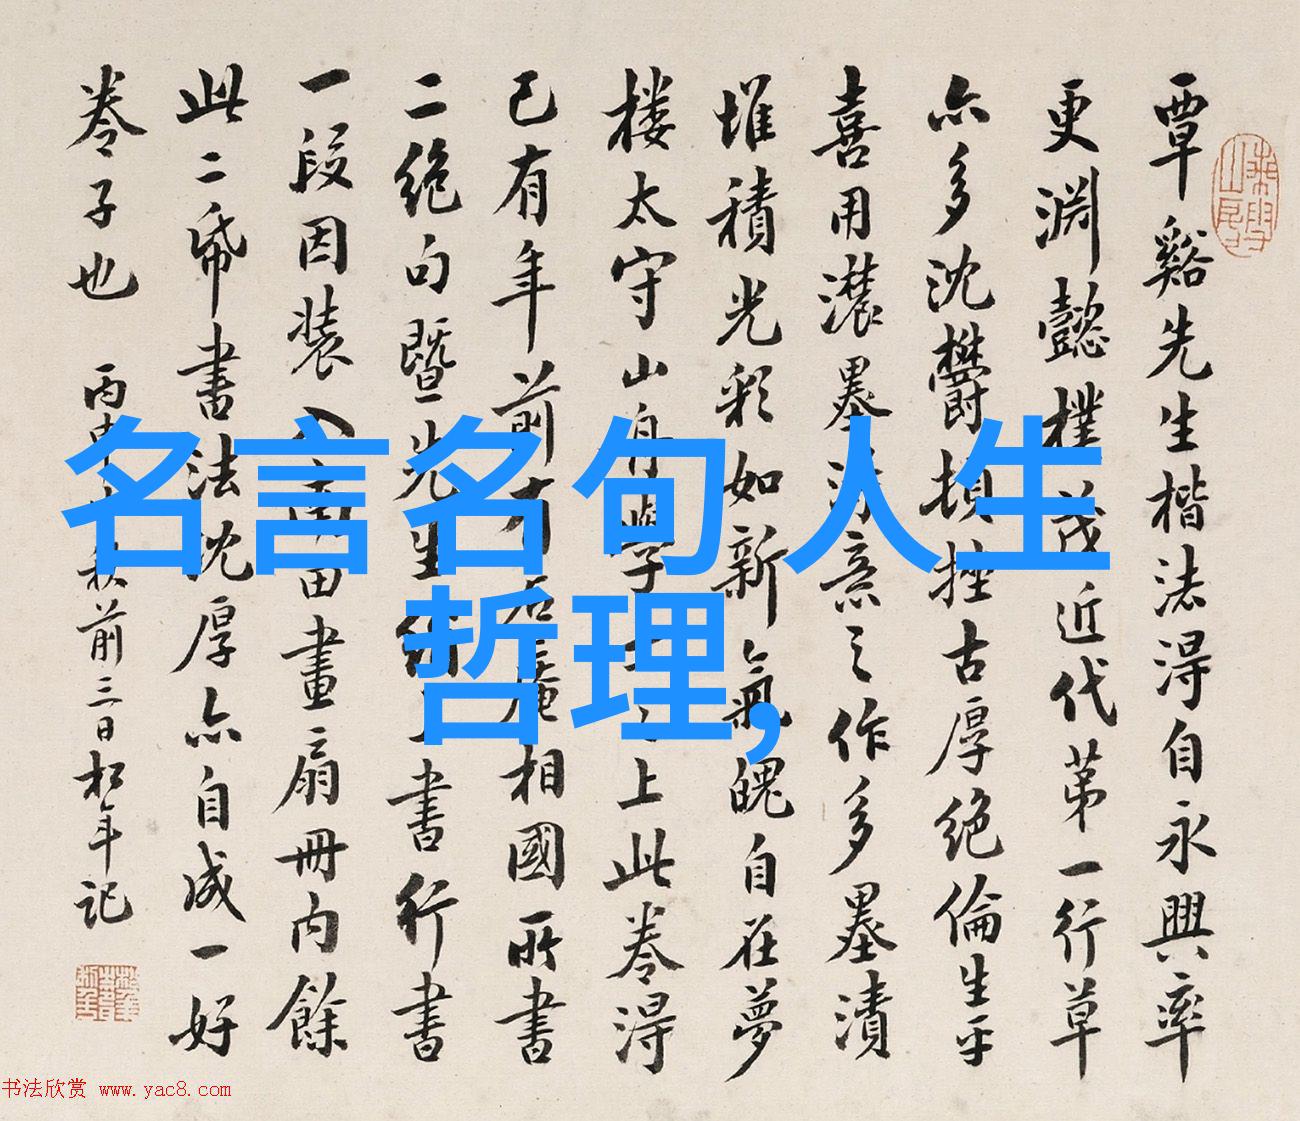 覃谿先生楷法得自永興率
更淵懿樸茂近代第一行草
亦多沈鬱頓挫古厚絕倫生平
喜用濃墨意之作多墨漬
堆積光彩如新氣魄自在夢
楼太守山舟學士之上此卷得
已有年前有石庵相國所書
二絕句暨先生書行書
一段因装入南田畫扇冊内餘
此二帋書法沈厚亦自成一好
卷子也 丙申秋前三日松年記
名言名句人生
哲理,
书法欣赏 www.yac8.com